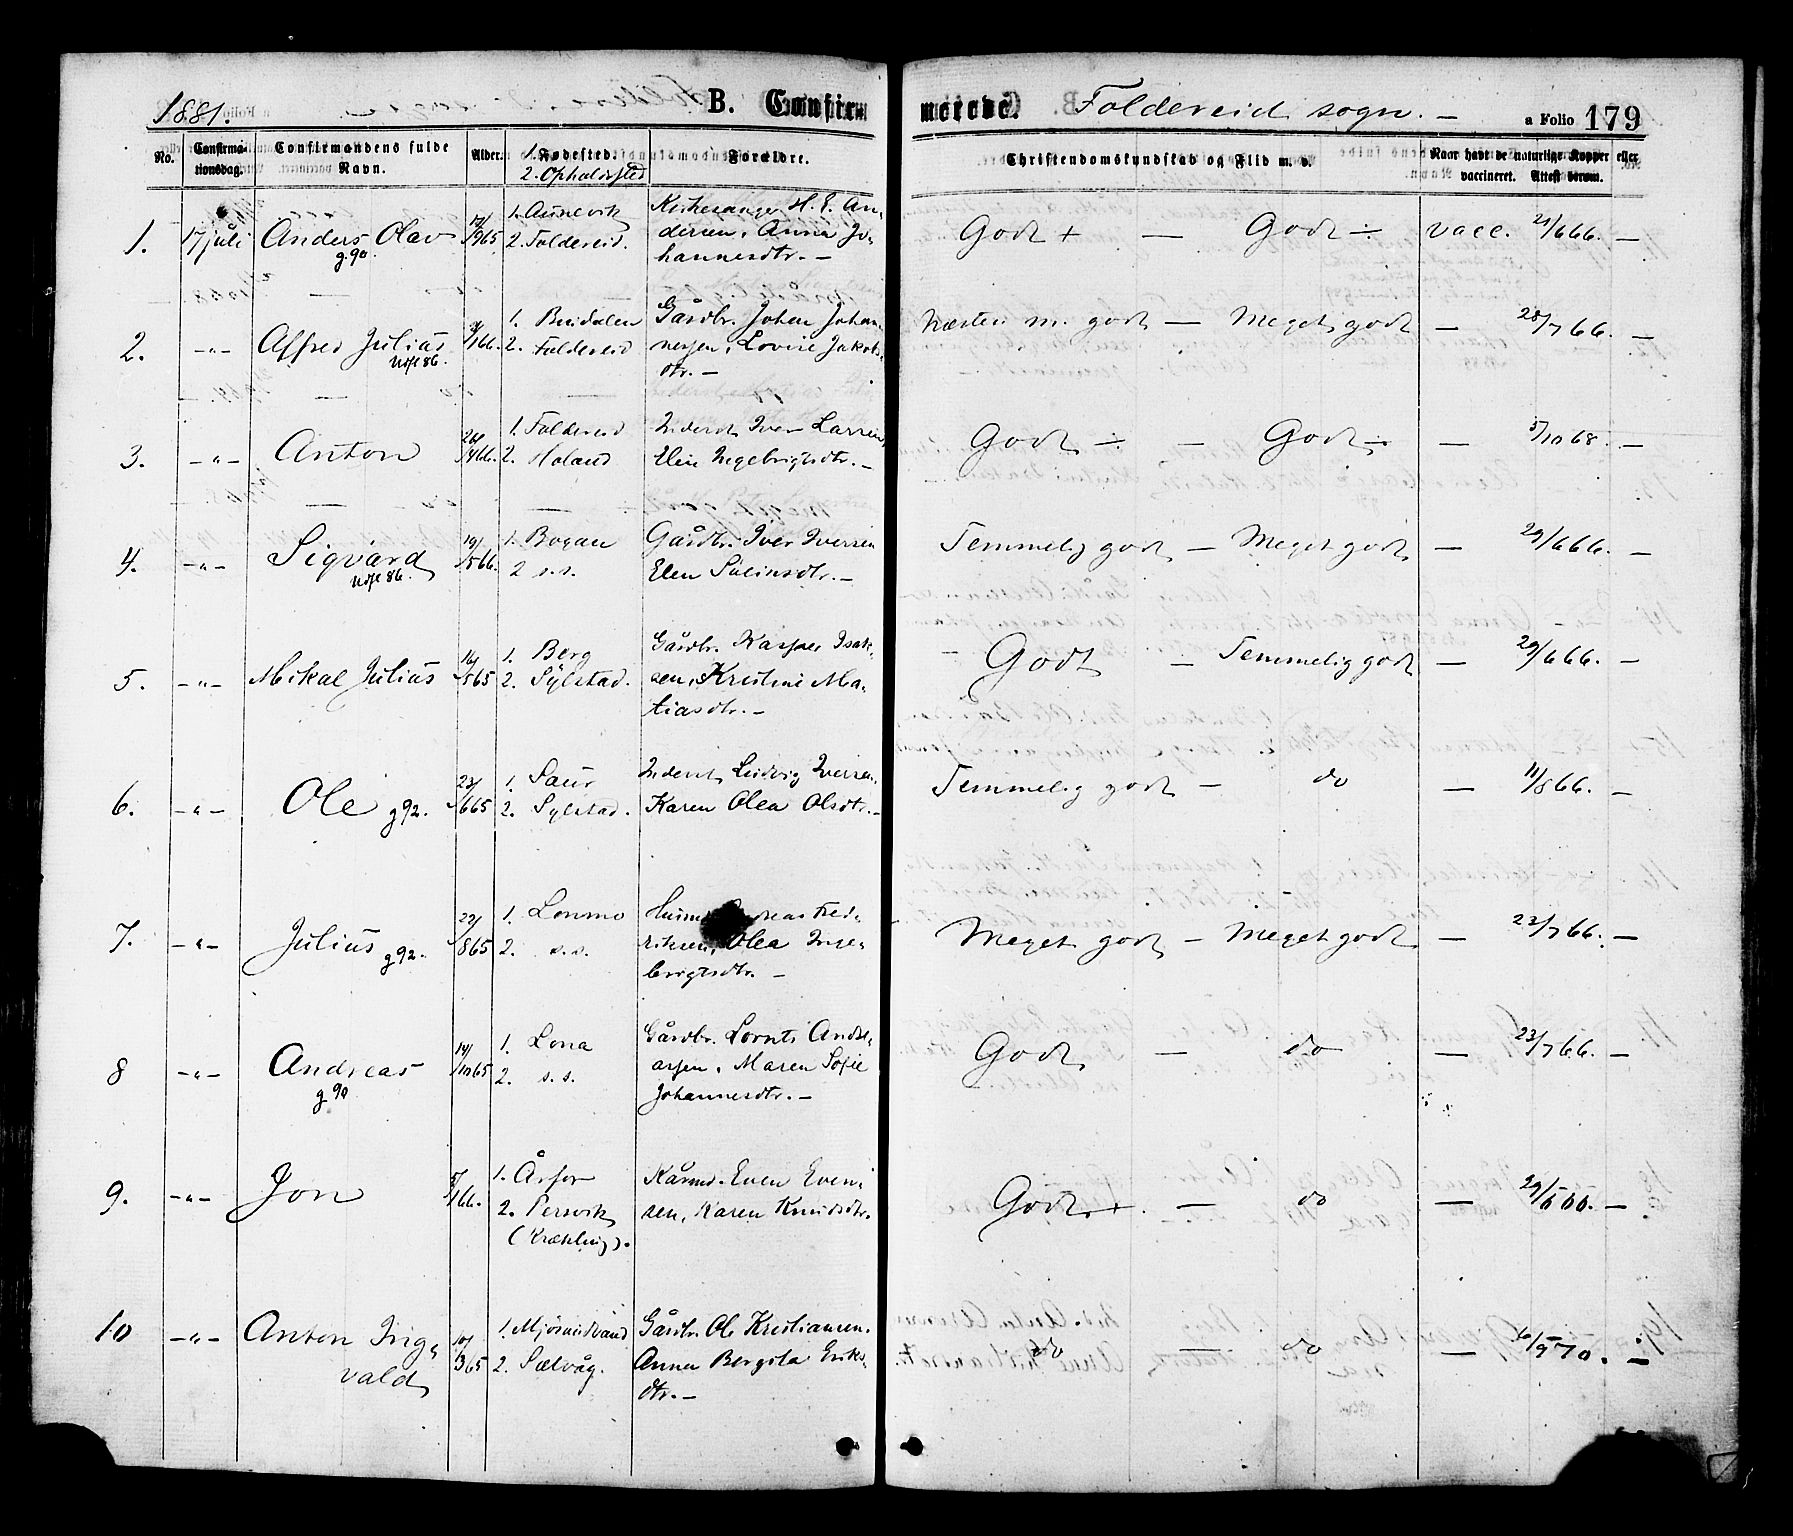 1881. B. Confirmerede. Foldereid sogn. — a Folio 179
No. Confirmationsdag. Confirmandens fulde Navn. Alder. 1. Fødested. 2. Opholdssted Forældre. Christendomskundskab og Flid m. v. Naar havt de naturlige Kopper eller vaccineret. Attest derom.
1. 17 juli Anders Olav g.90. 17/9 65 1. Aunevik 2. Foldereid. Kirkesanger H. E. An-
dersen, Anna Jo-
hannesdtr. — Godt + — Godt ÷ vacc. 21/6 66. —
2. —"— Alfred Julius Udfl 86. /1 66. 1. Buidalen 2. Foldereid Gårdbr. Johan Johan-
nessen, Lovise Jakobs-
dtr. — Næsten m. godt — Meget godt — 28/7 66. —
3. —"— Anton 26/4 66. 1. Foldereid 2. Høland Inderst Iver Larsen,
Elen Ingebrigtsdtr. — Godt ÷ — Godt ÷ — 5/10 68. —
4. —"— Sigvard Udfl 86. 19/5 66. 1. Bogan 2 s.s. Gårdbr. Iver Iversen
Elen Salinsdtr. — Temmelig godt — Meget godt — 29/6 66. —
5. —"— Mikal Julius 16/5 65 1. Berg 2. Sylstad. Gårdbr. Kasper Isak-
sen, Kristine Ma-
tiasdtr. — Godt — Temmelig godt — 29/6 66. —
6. —"— Ole g92. 23/6 65 1. Saur 2. Sylstad. Inderst Ludvig Iversen.
Karen Olea Olsdtr. — Temmelig godt — do — 11/8 66. —
7. —"— Julius g92. 22/8 65 1. Lonmo 2. s.s. Husmd. Andreas Fred-
riksen, Olea Inge-
brigtsdtr. — Meget godt — Meget godt — 23/7 66. —
8 —"— Andreas g90 14/10 65 1. Lona 2. s.s. Gårdbr. Lornts Andre-
assen, Maren Sofie
Johannesdtr. — Godt — do — 23/7 66. —
9. —"— Jon 5/1 66. 1. Årfor 2. Tervik (Kræklingø). Kårmd. Even Even-
sen, Karen Knudsdtr. Godt + — do — 29/6 66. —
10 —"— Anton Ing-
vald 10/3 65 1. Mjøsundvand 2. Sætvåg. Gårdbr. Ole Kristiansen.
Anna Bergita Eriks-
dtr. — do — do — 6/9 70. —